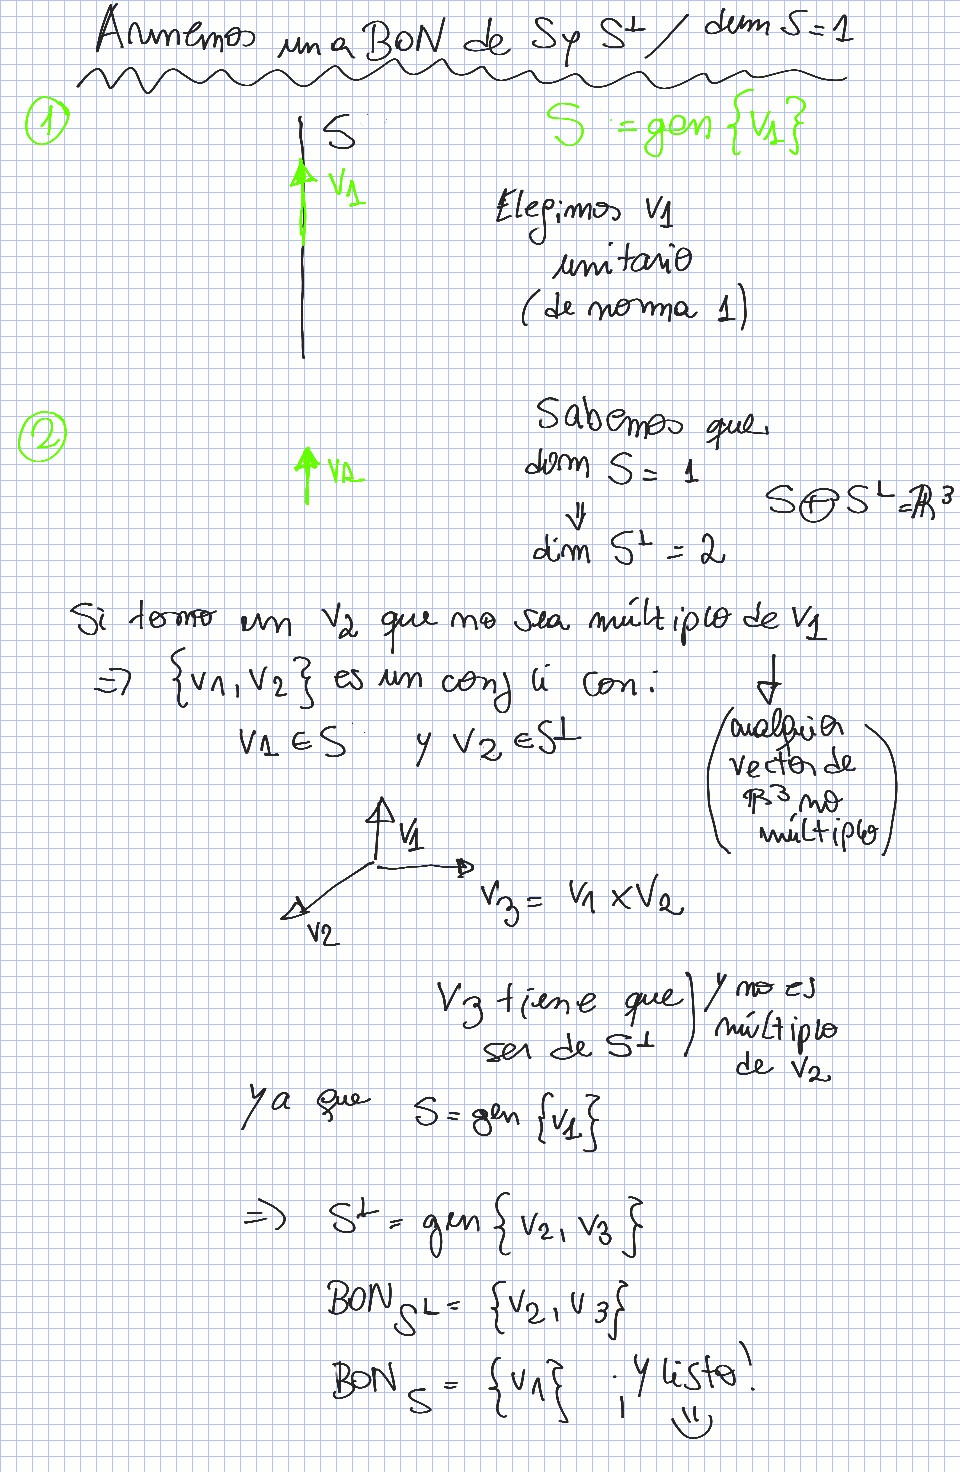 Armemos una BON de S y S⊥ / dim S = 1
1
S
S = gen {V1}
V1
Elegimos V1
unitario
(de norma 1)
2
V1
Sabemos que
dim S = 1
⇓
dim S⊥ = 2
S ⊕ S⊥ = ℝ³
Si tomo un V2 que no sea múltiplo de V1
⇒ {V1, V2} es un conj li con:
V1 ∈ S y V2 ∈ S⊥
(cualquier
vector de
ℝ³ no
múltiplo)
V1
V2
V3 = V1 × V2
V3 tiene que
ser de S⊥
y no es
múltiplo
de V2
ya que S = gen {V1}
⇒ S⊥ = gen {V2, V3}
BON S⊥ = {V2, V3}
BON S = {V1} ¡y listo!